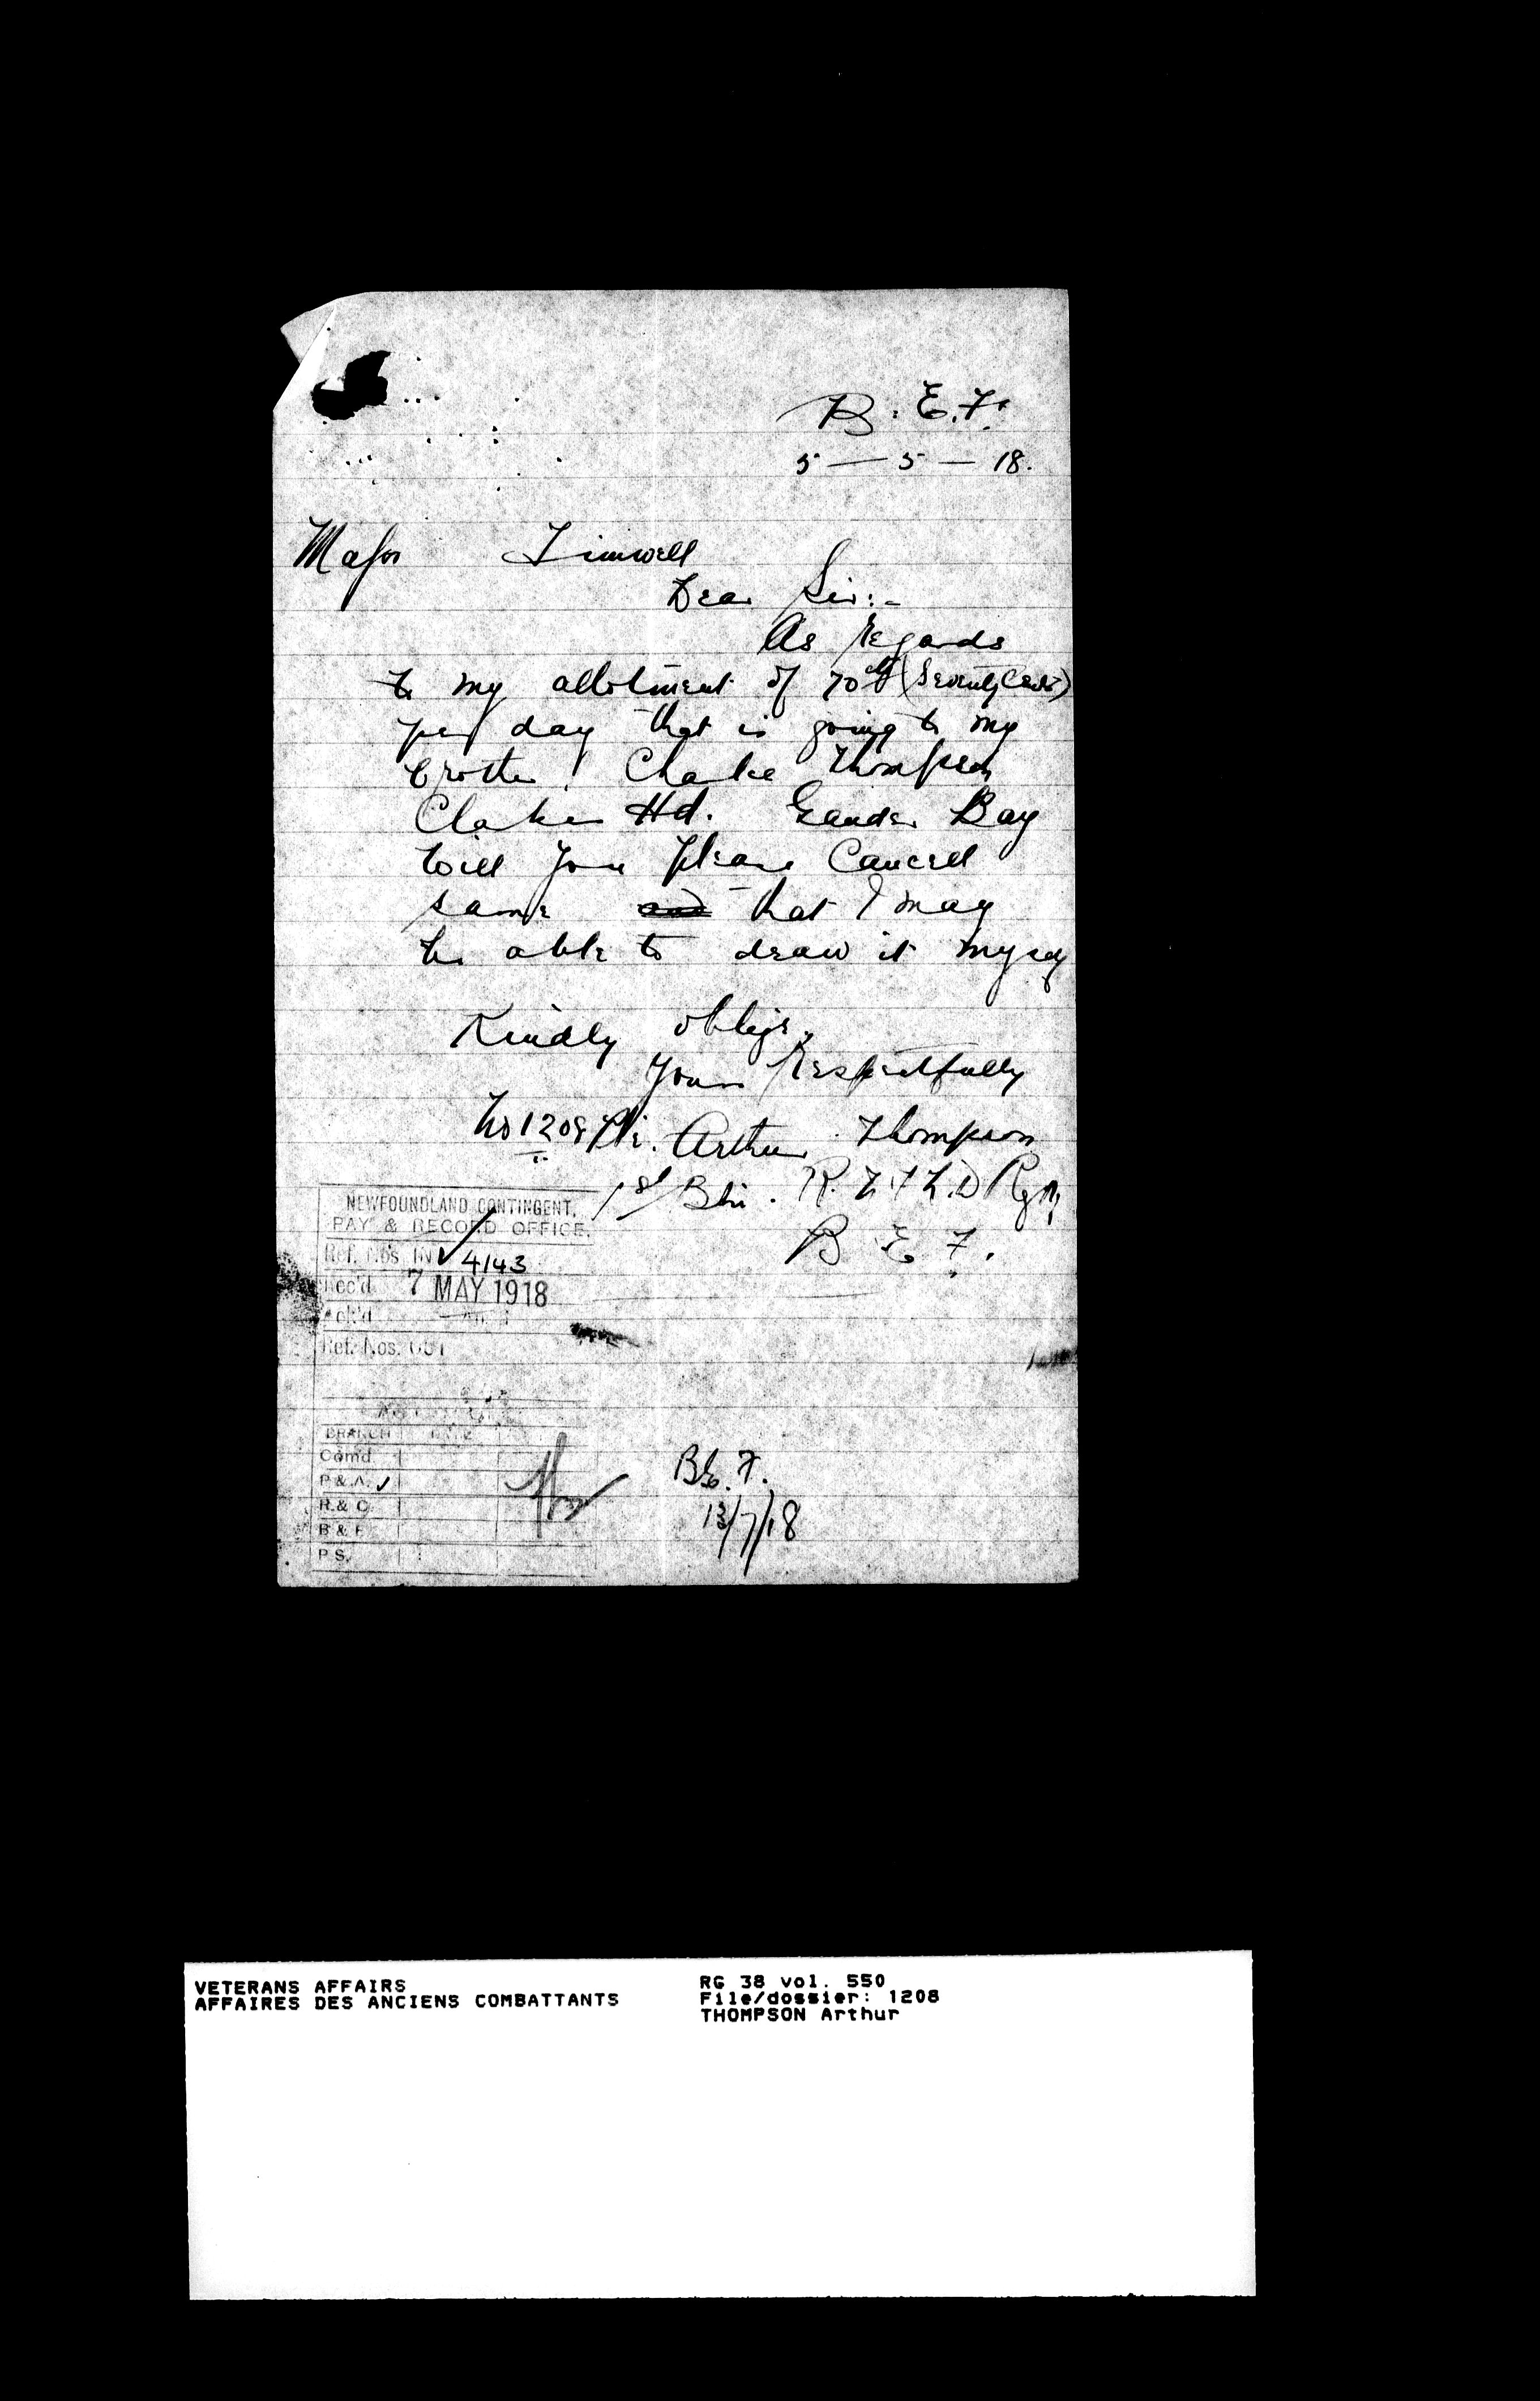 B. E. F.
5 — 5 — 18.
Major Timwell
Dear Sir:-
As Regards
to my allotment of 70cts (Seventy Cents)
per day that is going to my
brother Charlie Thompson
Clarkes Hd. Gander Bay
Will you please Cancell
same that I may
be able to draw it myself
Kindly oblige,
Yours Respectfully
No 1208 Pte. Arthur Thompson
1st Btn. R. N. F. L. D Rgnt
B E F.
NEWFOUNDLAND CONTINGENT.
PAY & RECORD OFFICE.
Ref. Nos. IN 4143
Rec'd. 7 MAY 1918
Ack'd
Ref. Nos.
BRANCH
Comd.
P & A.
R. & C.
B & F.
P S.
B. E. F.
13/7/18
VETERANS AFFAIRS
AFFAIRES DES ANCIENS COMBATTANTS
RG 38 vol. 550
File/dossier: 1208
THOMPSON Arthur